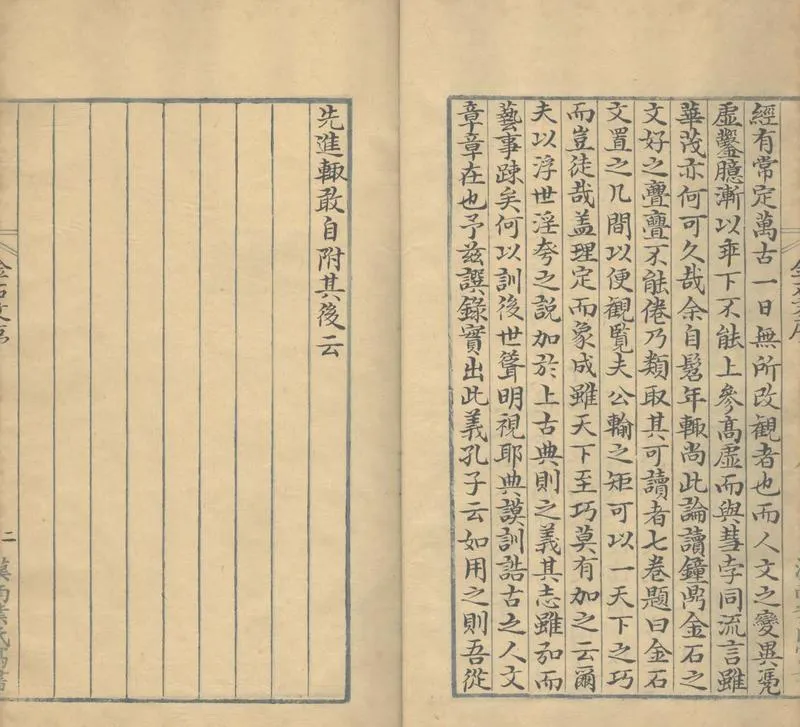 經有常定萬古一日無所改觀者也而人文之變異凴
虛鑿臆漸以卑下不能上參高虛而與彗孛同流言雖
華茂亦何可久哉余自髫年輙尚此論讀鐘鼎金石之
文好之亹亹不能倦乃類取其可讀者七卷題曰金石
文置之几間以便觀覧夫公輸之矩可以一天下之巧
而豈徒哉盖理定而象成雖天下至巧莫有加之云爾
夫以浮世淫夸之說加於上古典則之義其志雖而
藝事疎矣何以訓後世聳明視耶典謨訓誥古之人文
章章在也予兹譔錄實出此義孔子云如用之則吾從
先進輙敢自附其後云
金石文序
二